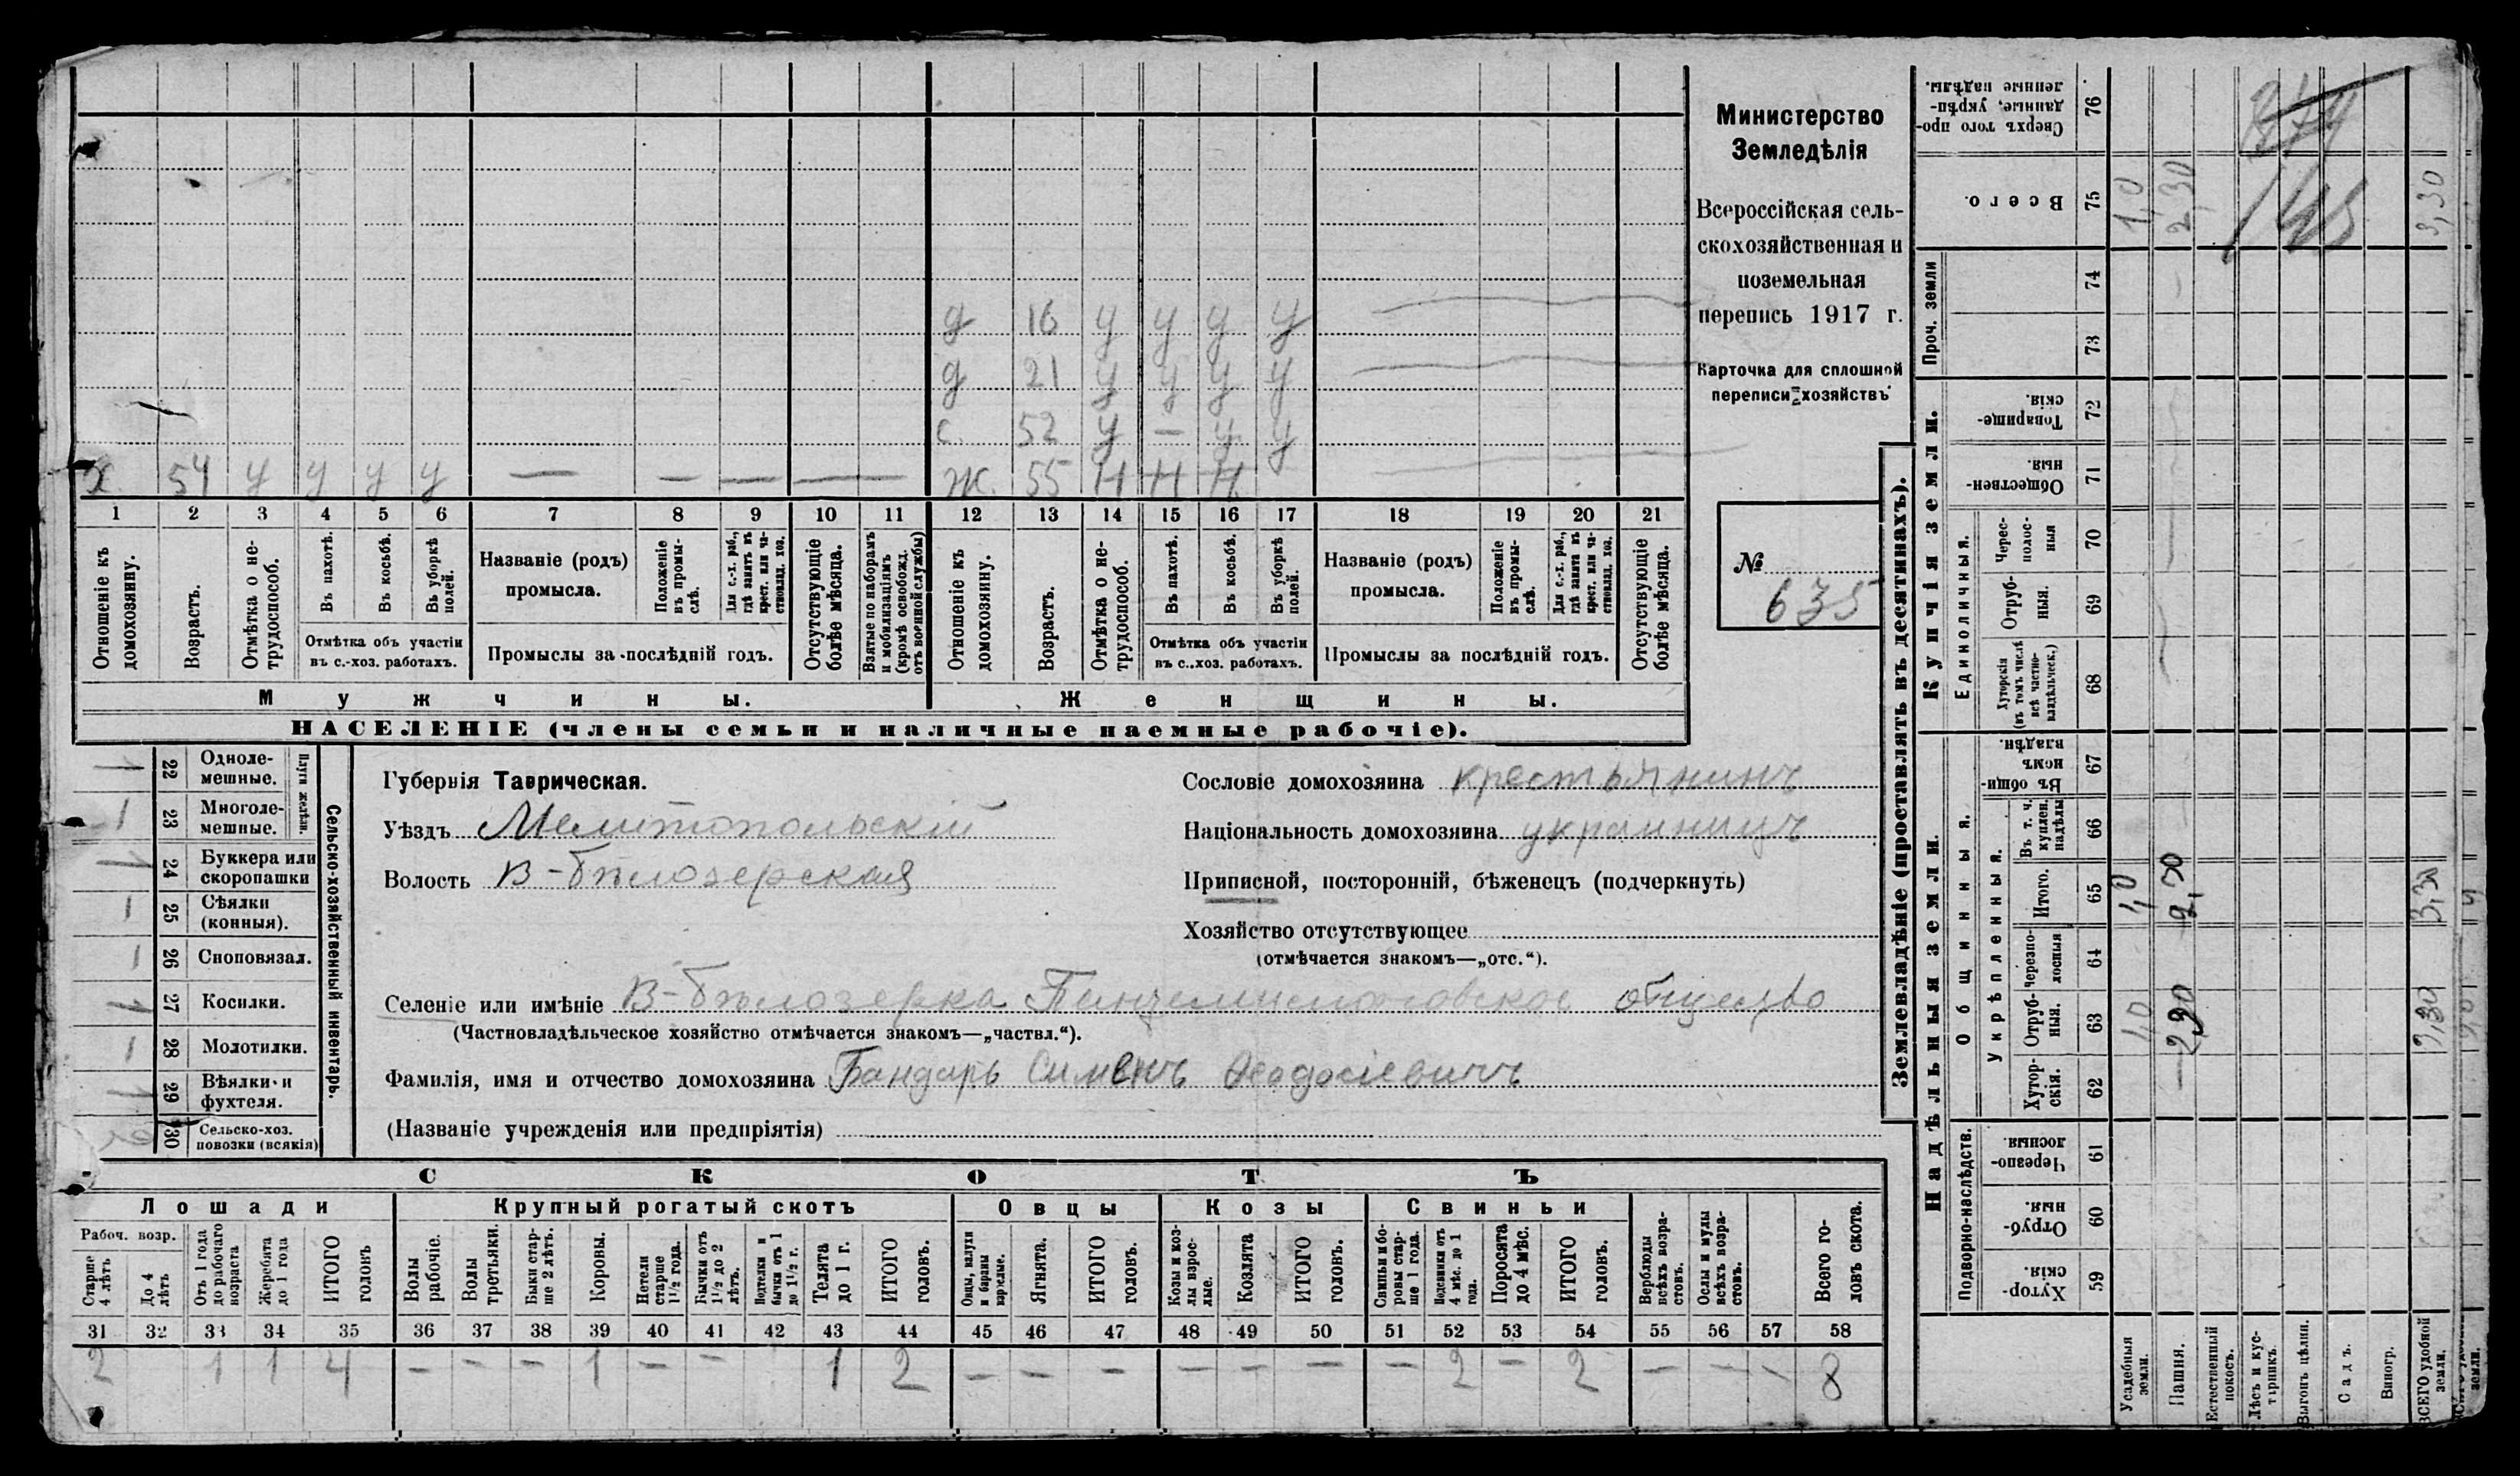 д 16 у у у у
д 21 у у у у
с. 52 у — у у
х 54 у у у у — — — — ж. 55 Н Н Н
1 2 3 4 5 6 7 8 9 10 11 12 13 14 15 16 17 18 19 20 21
Отношеніе къ домохозяину.
Возрастъ.
Отмѣтка о не-трудоспособ.
Въ пахотѣ.
Въ косьбѣ.
Въ уборкѣ полей.
Отмѣтка объ участіи
въ с.-хоз. работахъ.
Названіе (родъ)
промысла.
Положеніе въ промы-слѣ.
Для с.-х. раб., гдѣ занятъ въ крест. или ча-стновлад. хоз.
Промыслы за послѣдній годъ.
Отсутствующіе болѣе мѣсяца.
Взятые по наборамъ и мобилизаціямъ (кромѣ освобожд. отъ военной службы)
Отношеніе къ домохозяину.
Возрастъ.
Отмѣтка о не-трудоспособ.
Въ пахотѣ.
Въ косьбѣ.
Въ уборкѣ полей.
Отмѣтка объ участіи
въ с.-хоз. работахъ.
Названіе (родъ)
промысла.
Положеніе въ промы-слѣ.
Для с.-х. раб., гдѣ занята въ крест. или ча-стновлад. хоз.
Промыслы за послѣдній годъ.
Отсутствующіе болѣе мѣсяца.
Мужчины.
Женщины.
НАСЕЛЕНІЕ (члены семьи и наличные наемные рабочіе).
Министерство
Земледѣлія
Всероссійская сель-
скохозяйственная и
поземельная
перепись 1917 г.
Карточка для сплошной
переписи хозяйствъ
№
635
Сельско-хозяйственный инвентарь.
Плуги желѣзн.
22 Одноле-мешные.
1 23 Многоле-мешные.
24 Буккера или скоропашки
1 25 Сѣялки (конныя).
1 26 Сноповязал.
27 Косилки.
1 28 Молотилки.
29 Вѣялки и фухтеля.
30 Сельско-хоз. повозки (всякія)
Губернія Таврическая.
Уѣздъ Мелитопольскій
Волость В-Бѣлозерская
Сословіе домохозяина крестьянинъ
Національность домохозяина украинецъ
Приписной, посторонній, бѣженецъ (подчеркнуть)
Хозяйство отсутствующее
(отмѣчается знакомъ—„отс.“).
Селеніе или имѣніе В-Бѣлозерка общество
(Частновладѣльческое хозяйство отмѣчается знакомъ—„частвл.“).
Фамилія, имя и отчество домохозяина Бандарь Сименъ Феодосіевичъ
(Названіе учрежденія или предпріятія)
СКОТЪ
Лошади
Крупный рогатый скотъ
Овцы
Козы
Свиньи
Рабоч. возр.
Старше 4 лѣтъ
До 4 лѣтъ
Отъ 1 года до рабочаго возраста
Жеребята до 1 года
ИТОГО головъ
Волы рабочіе.
Волы третьяки.
Быки стар-ше 2 лѣтъ.
Коровы.
Нетели старше 1½ года.
Бычки отъ 1½ до 2 лѣтъ.
Подтелки и бычки отъ 1 до 1½ г.
Телята до 1 г.
ИТОГО головъ.
Овцы, валухи и бараны взрослые.
Ягнята.
ИТОГО головъ.
Козы и коз-лы взрос-лые.
Козлята
ИТОГО головъ.
Свиньи и бо-ровы стар-ше 1 года.
Подсвинки отъ 4 мѣс. до 1 года.
Поросята до 4 мѣс.
ИТОГО головъ.
Верблюды всѣхъ возра-стовъ.
Ослы и мулы всѣхъ возра-стовъ.
Всего го-ловъ скота.
31 32 33 34 35 36 37 38 39 40 41 42 43 44 45 46 47 48 49 50 51 52 53 54 55 56 57 58
2 1 1 4 — — — 1 — — 1 2 — — — — — — — 2 — 2 — — — 8
Землевладѣніе (проставлять въ десятинахъ).
Надѣльныя земли.
Купчія земли.
Проч. земли
Подворно-наслѣдств.
Общинныя.
Укрѣпленныя.
Единоличныя.
59 Хутор-скія.
60 Отруб-ныя.
61 Черезпо-лосныя.
62 Хутор-скія.
63 Отруб-ныя. 1,0 2,30 2,30
64 Черезпо-лосныя
65 Итого. 1,0 3,30
66 Въ т. ч. куплен. надѣлы
67 Въ общи-номъ владѣн.
68 Хуторскія (въ томъ числѣ всѣ частно-владѣльческ.)
69 Отруб-ныя.
70 Черес-полос-ныя
71 Обществен-ныя.
72 Товарище-скія.
73
74
75 Всего. 1,0 2,30 3,30
76 Сверхъ того про-данные, укрѣп-ленные надѣлы.
Усадебныя земли.
Пашня.
Естественный покосъ.
Лѣсъ и кус-тарникъ.
Выгонъ цѣлин.
Садъ.
Виногр.
ВСЕГО удобной земли.